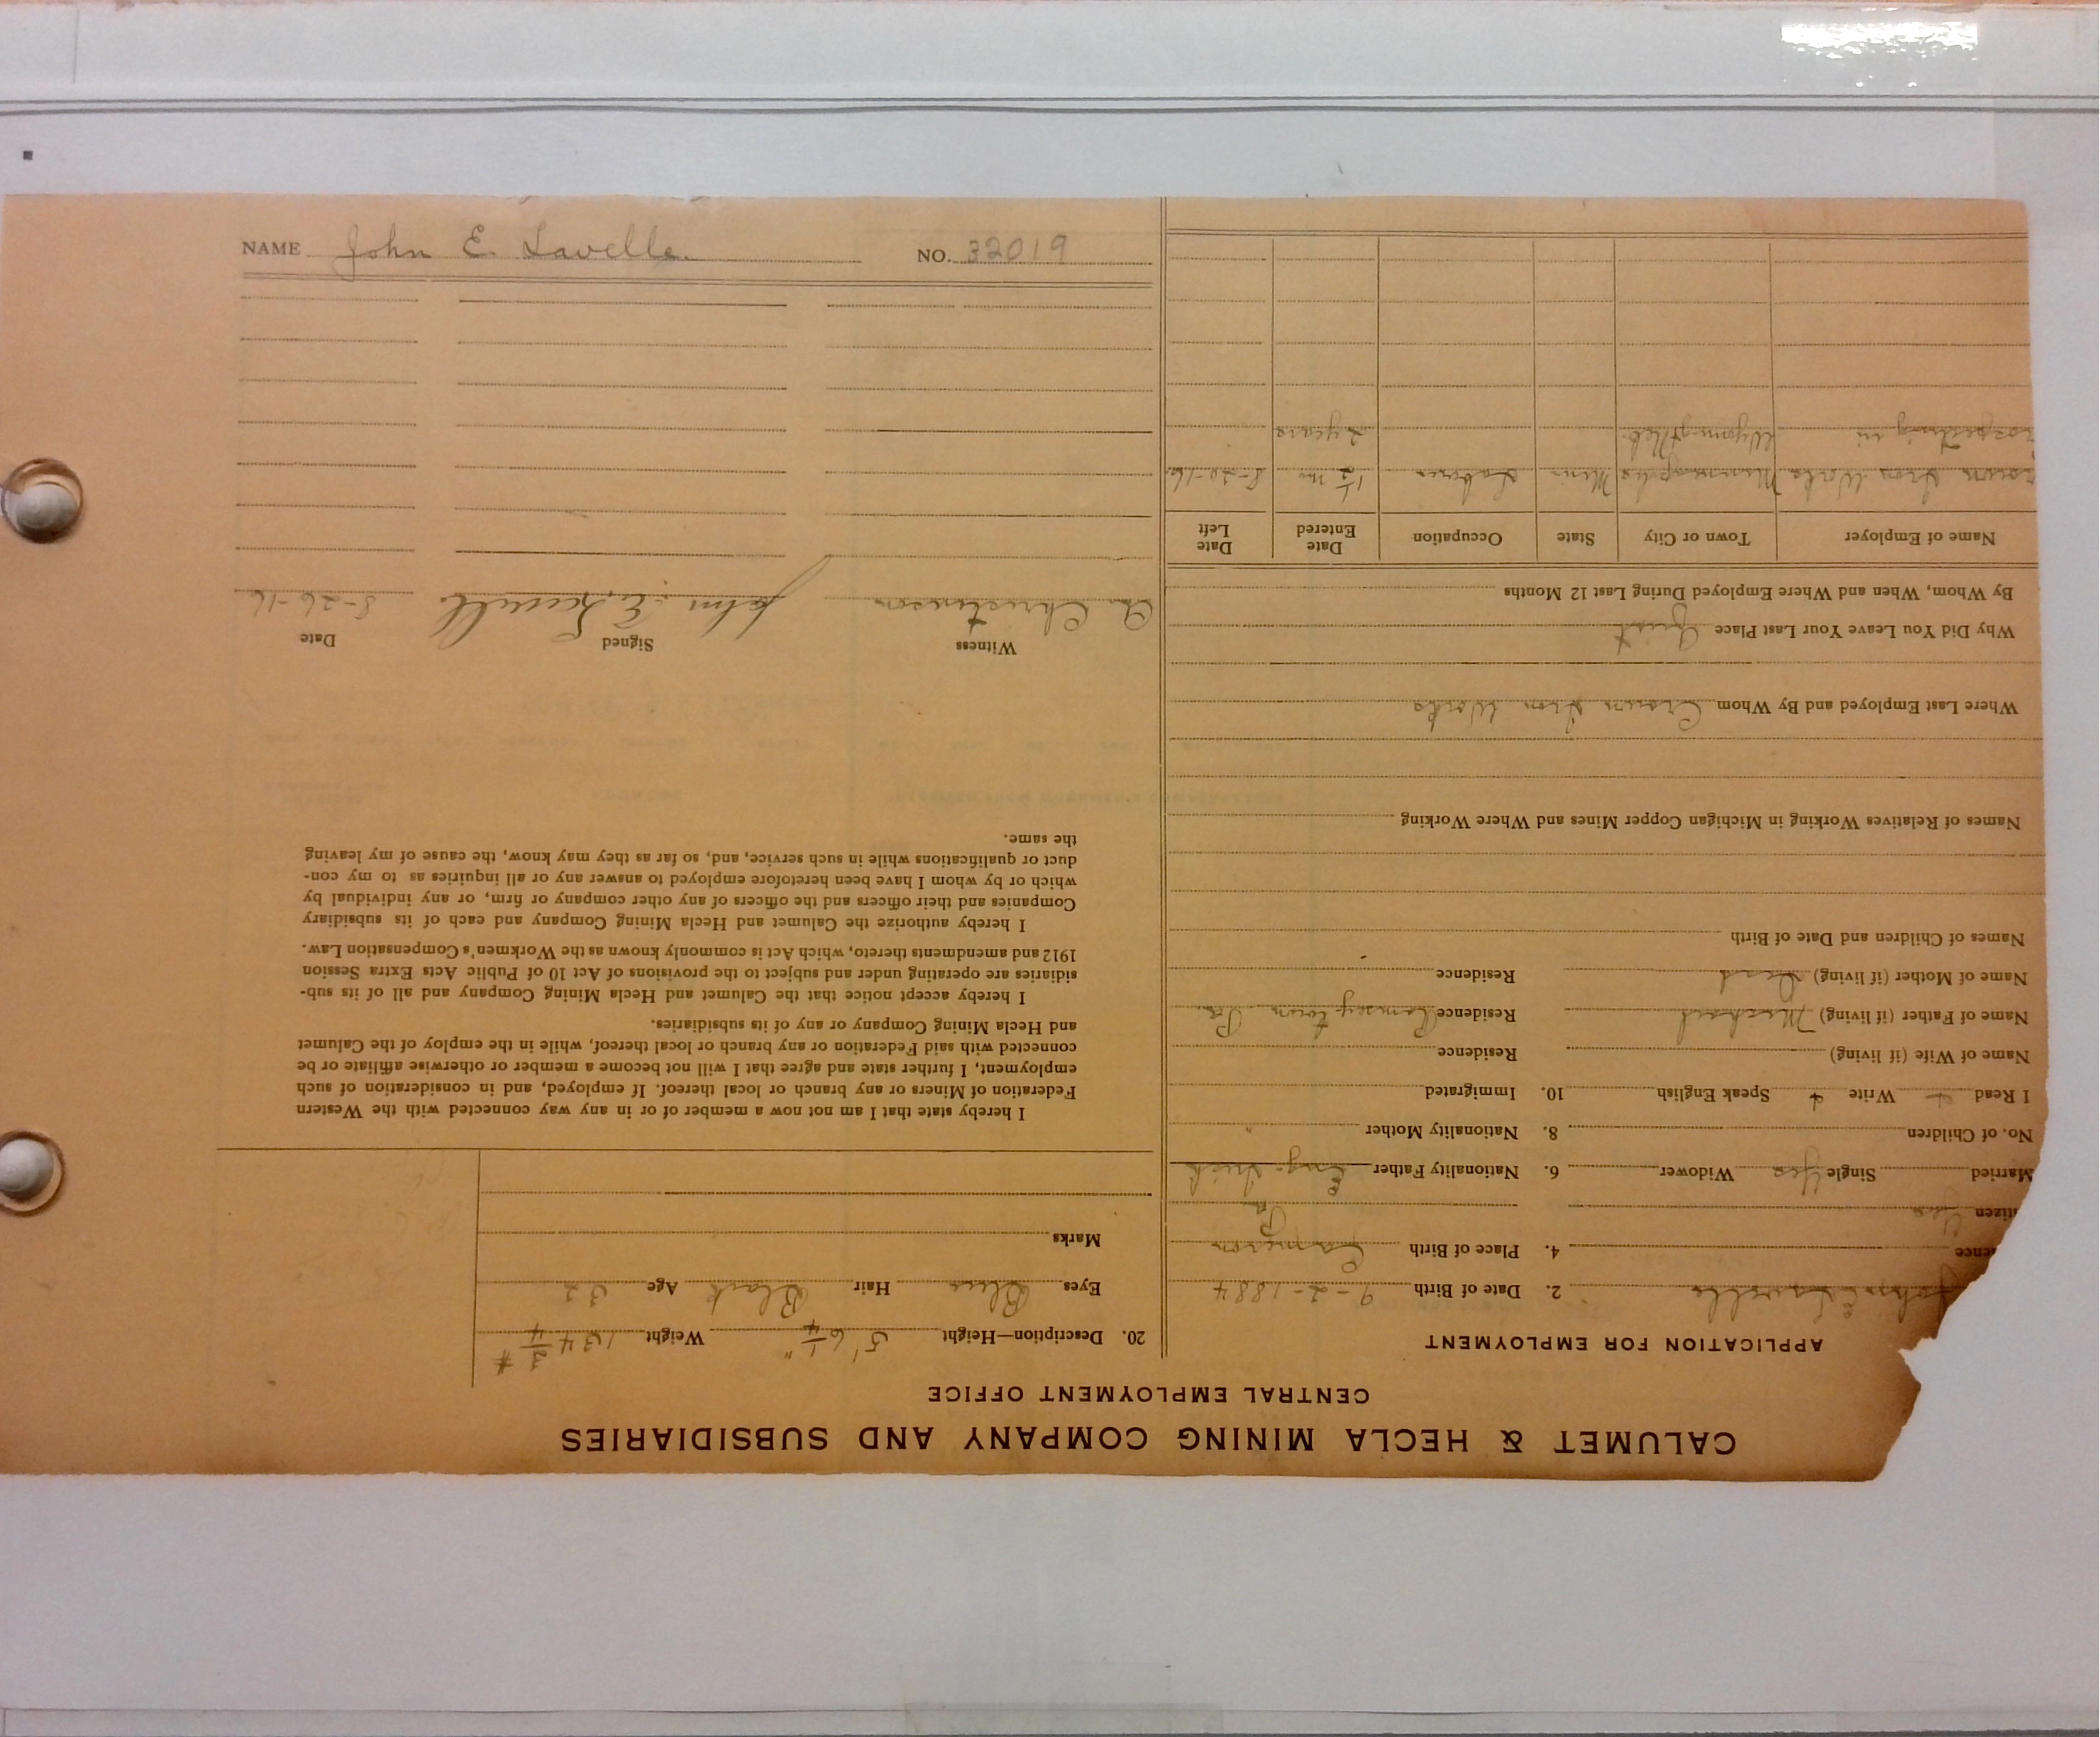 NAME John E. Lavelle NO. 32019
CALUMET & HECLA MINING COMPANY AND SUBSIDIARIES
CENTRAL EMPLOYMENT OFFICE
APPLICATION FOR EMPLOYMENT
John E Lavelle 2. Date of Birth 9-2-1884
ence 4. Place of Birth Cameron
itizen Yes Pa
Married Single Yes Widower 6. Nationality Father Eng-Irish
No. of Children 8. Nationality Mother "
I Read Write Speak English 10. Immigrated
Name of Wife (if living) Residence
Name of Father (if living) Michael Residence Ramseytown Pa.
Name of Mother (if living) Dead Residence
Names of Children and Date of Birth
Names of Relatives Working in Michigan Copper Mines and Where Working
Where Last Employed and By Whom Crown Iron Works
Why Did You Leave Your Last Place Quit
By Whom, When and Where Employed During Last 12 Months
Name of Employer Town or City State Occupation Date Entered Date Left
rown Iron Works Minneapolis Min Laborer 1 1/2 mo 8-20-16
rospecting in Wyoming & Neb. 2 years
20. Description—Height 5' 6 1/4" Weight 134 3/4 #
Eyes Blue Hair Black Age 32
Marks
I hereby state that I am not now a member of or in any way connected with the Western
Federation of Miners or any branch or local thereof. If employed, and in consideration of such
employment, I further state and agree that I will not become a member or otherwise affiliate or be
connected with said Federation or any branch or local thereof, while in the employ of the Calumet
and Hecla Mining Company or any of its subsidiaries.
I hereby accept notice that the Calumet and Hecla Mining Company and all of its sub-
sidiaries are operating under and subject to the provisions of Act 10 of Public Acts Extra Session
1912 and amendments thereto, which Act is commonly known as the Workmen's Compensation Law.
I hereby authorize the Calumet and Hecla Mining Company and each of its subsidiary
Companies and their officers and the officers of any other company or firm, or any individual by
which or by whom I have been heretofore employed to answer any or all inquiries as to my con-
duct or qualifications while in such service, and, so far as they may know, the cause of my leaving
the same.
Witness Signed Date
A. Christenson John E. Lavelle 8-26-16